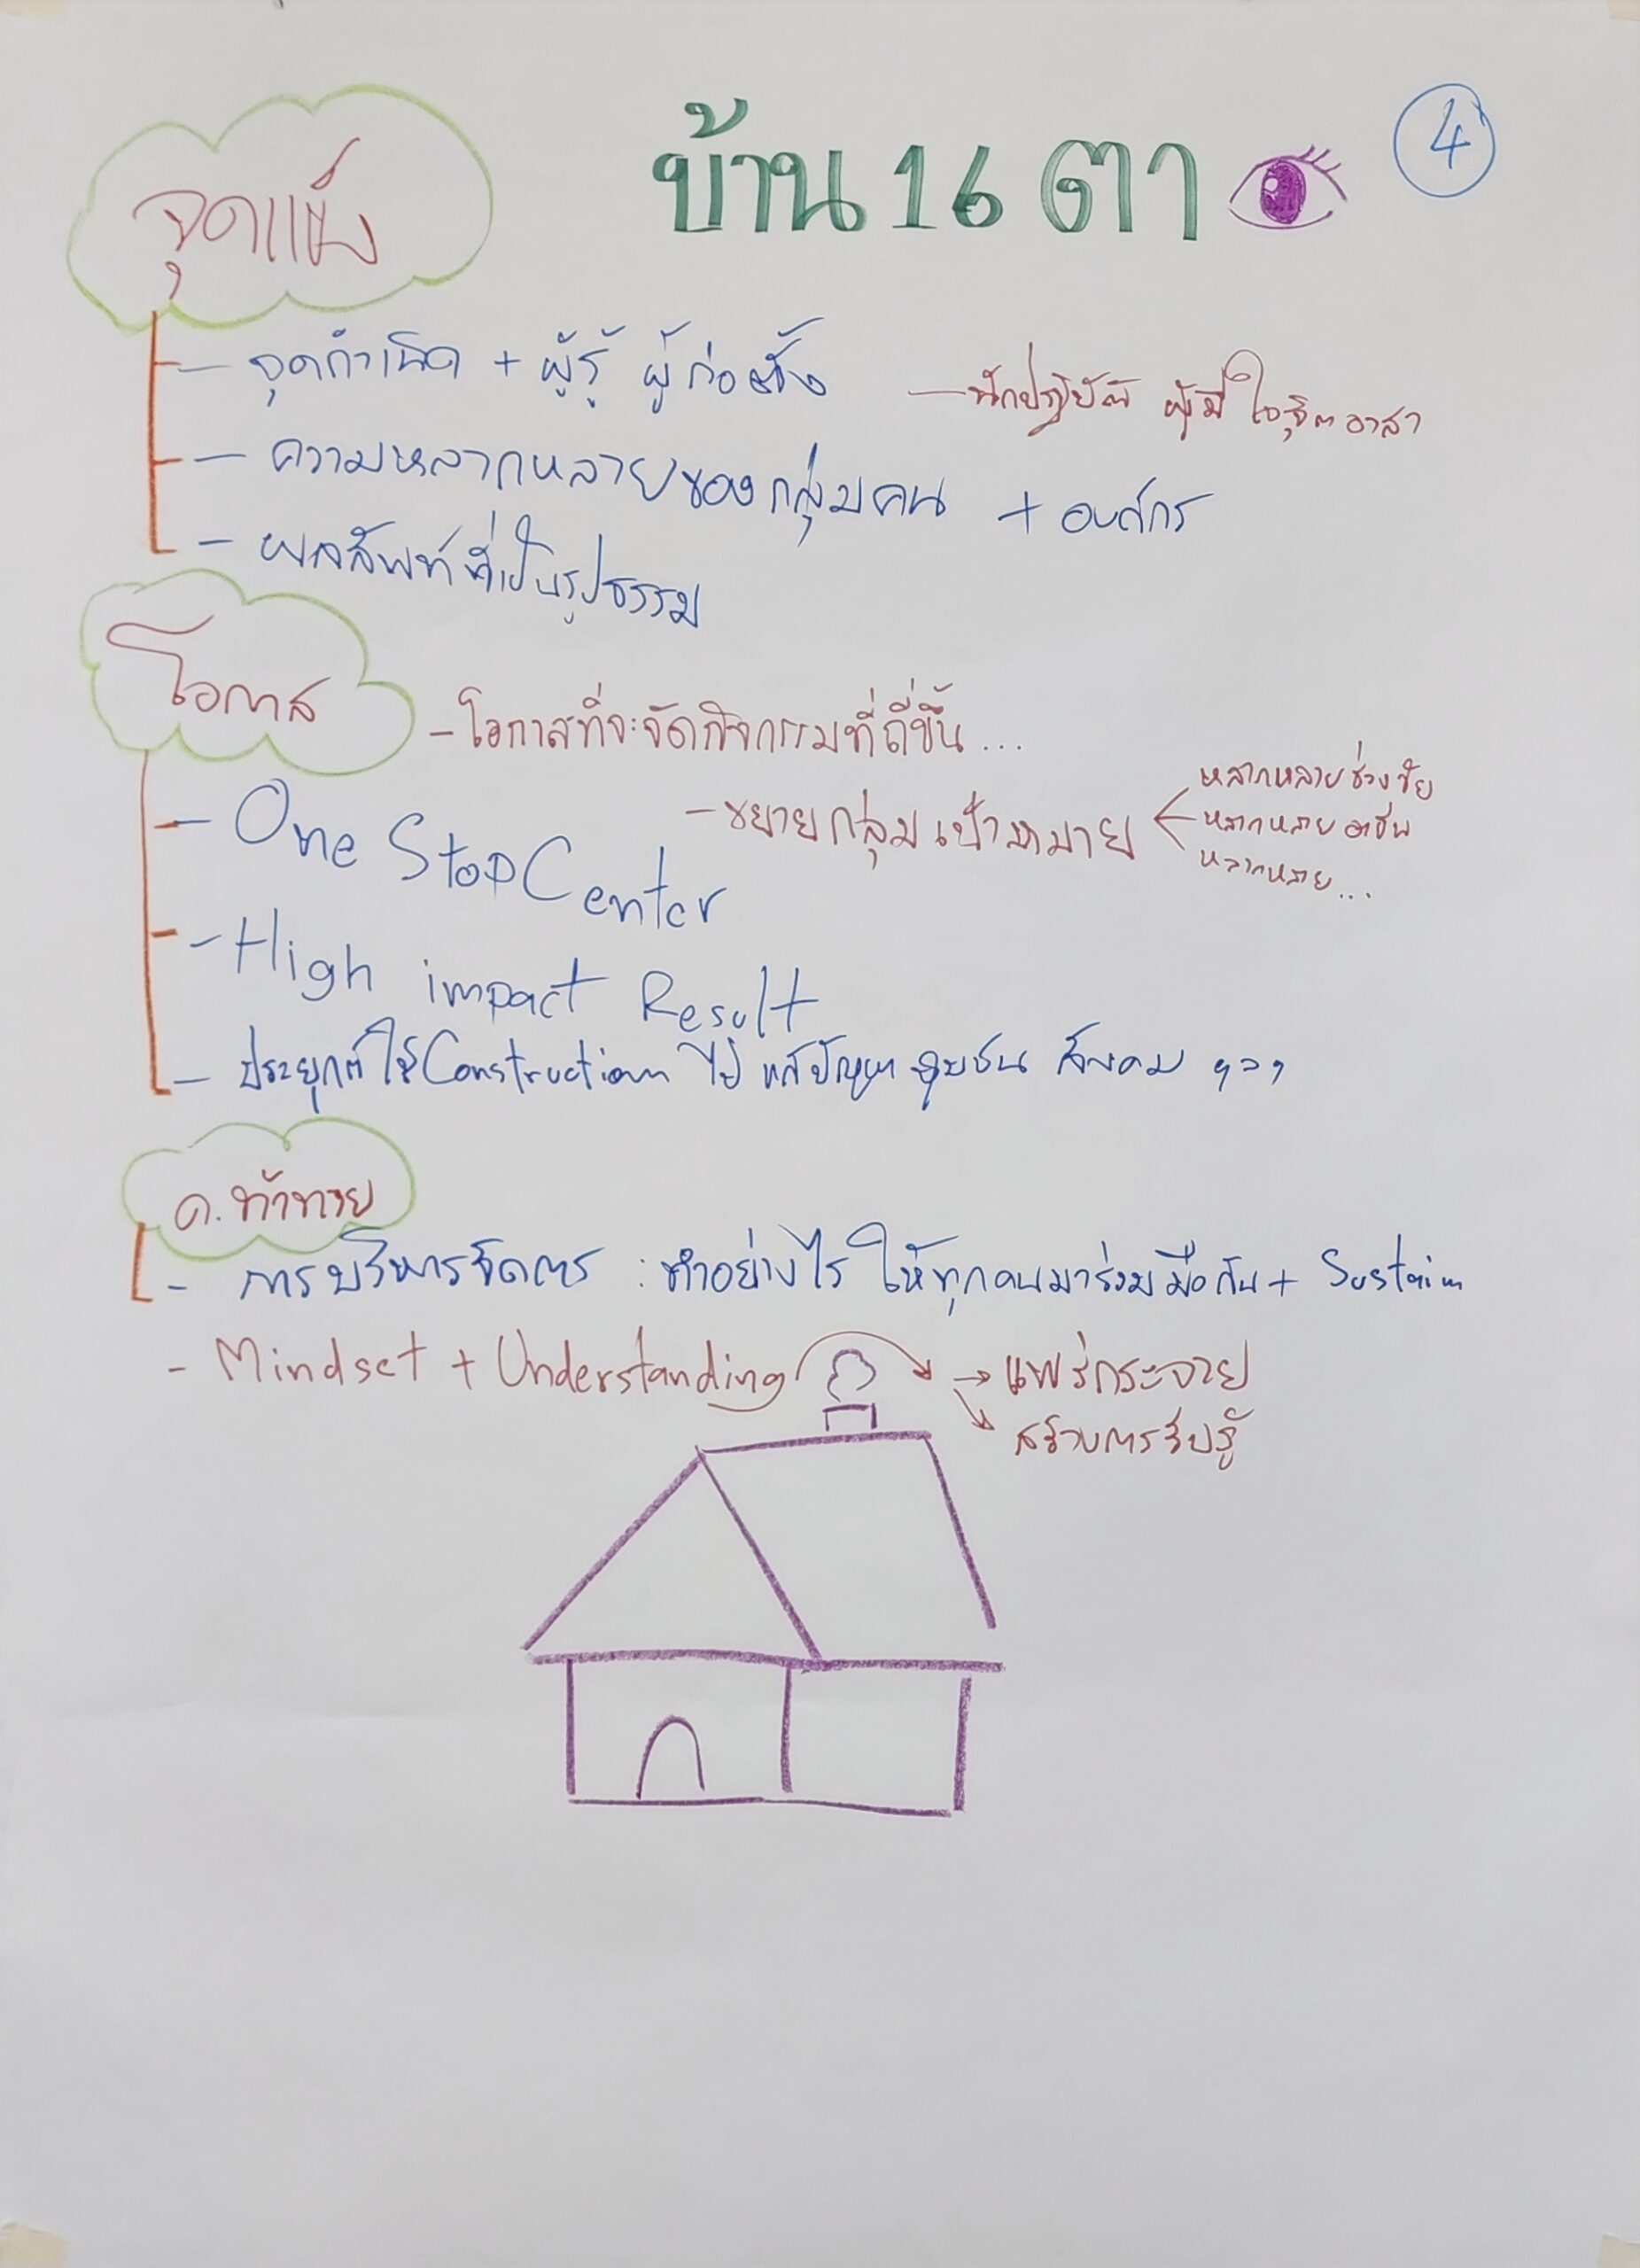 บ้าน 16 ตา
4
จุดแข็ง
- จุดกำเนิด + ผู้รู้ ผู้ก่อตั้ง
- นักปฏิบัติ ผู้มีใจจิตอาสา
- ความหลากหลายของกลุ่มคน + องค์กร
- ผลลัพท์ที่เป็นรูปธรรม
โอกาส
- โอกาสที่จะจัดกิจกรรมที่ถี่ขึ้น...
- One Stop Center
- ขยายกลุ่มเป้าหมาย
หลากหลายช่วงวัย
หลากหลายอาชีพ
หลากหลาย...
- High impact Result
- ประยุกต์ใช้ Construction ไปแก้ปัญหา ชุมชน สังคม ฯลฯ
ค.ท้าทาย
- การบริหารจัดการ : ทำอย่างไร ให้ทุกคนมาร่วมมือกัน + Sustain
- Mindset + Understanding → แพร่กระจาย
สร้างการรับรู้